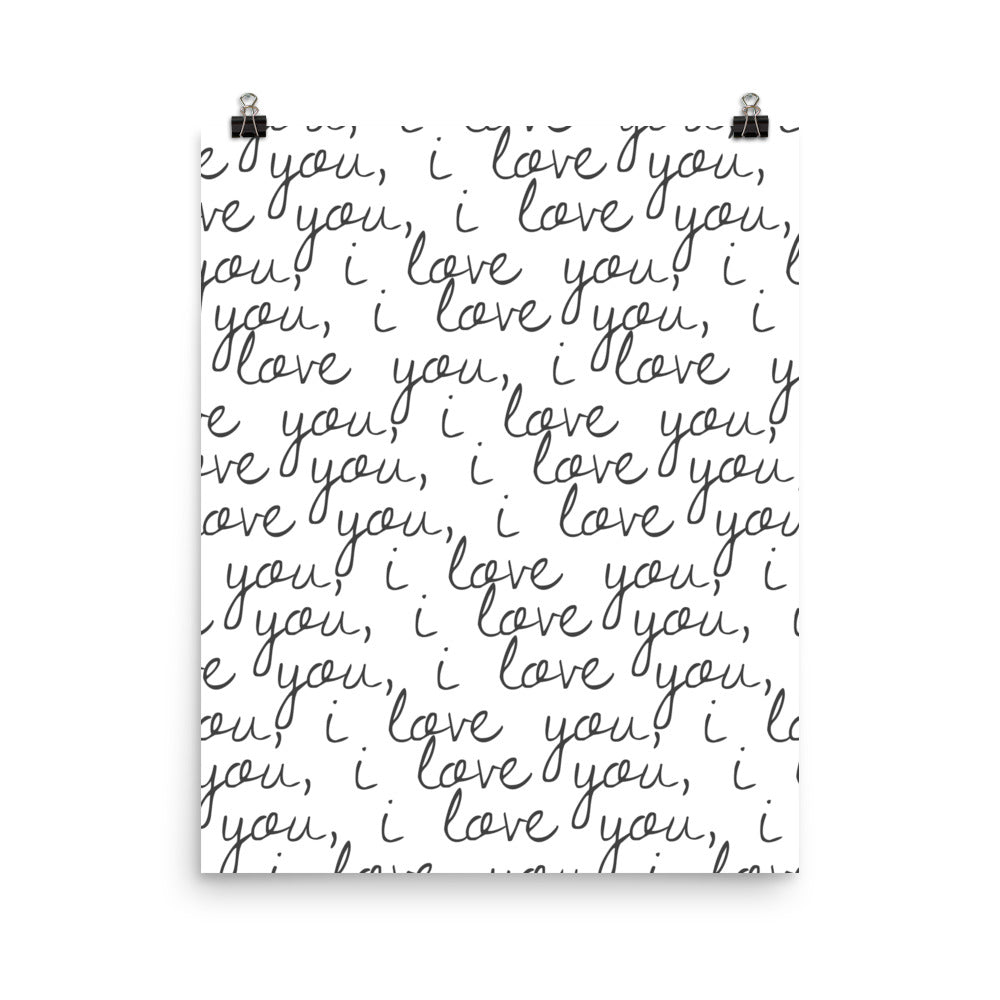 you, i love you, i
e you, i love you,
ve you, i love you,
you, i love you, i l
you, i love you, i
love you, i love y
e you, i love you,
ve you, i love you,
ove you, i love you
you, i love you, i
you, i love you, i
e you, i love you,
ou, i love you, i lo
you, i love you, i
you, i love you, i
i love you i love